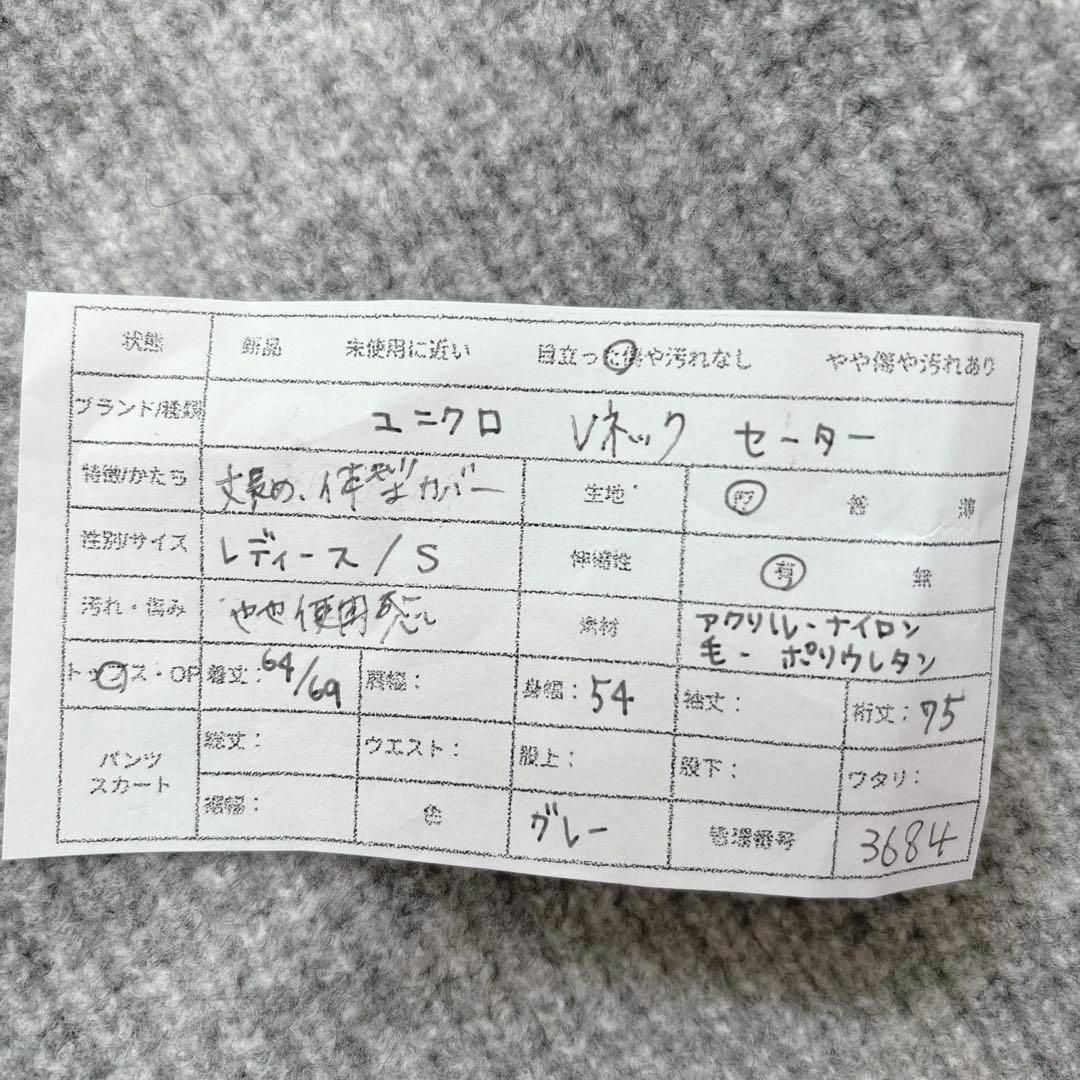 状態 新品 未使用に近い 目立った傷や汚れなし やや傷や汚れあり
ブランド/種類 ユニクロ Vネック セーター
特徴/かたち 丈長め、体型カバー 生地 厚 普 薄
性別/サイズ レディース/S 伸縮性 有 無
汚れ・傷み やや使用感 素材 アクリル・ナイロン
毛・ポリウレタン
トップス・OP 着丈:64/69 肩幅: 身幅:54 袖丈: 裄丈:75
パンツ
スカート
総丈: ウエスト: 股上: 股下: ワタリ:
裾幅: 色 グレー 管理番号 3684